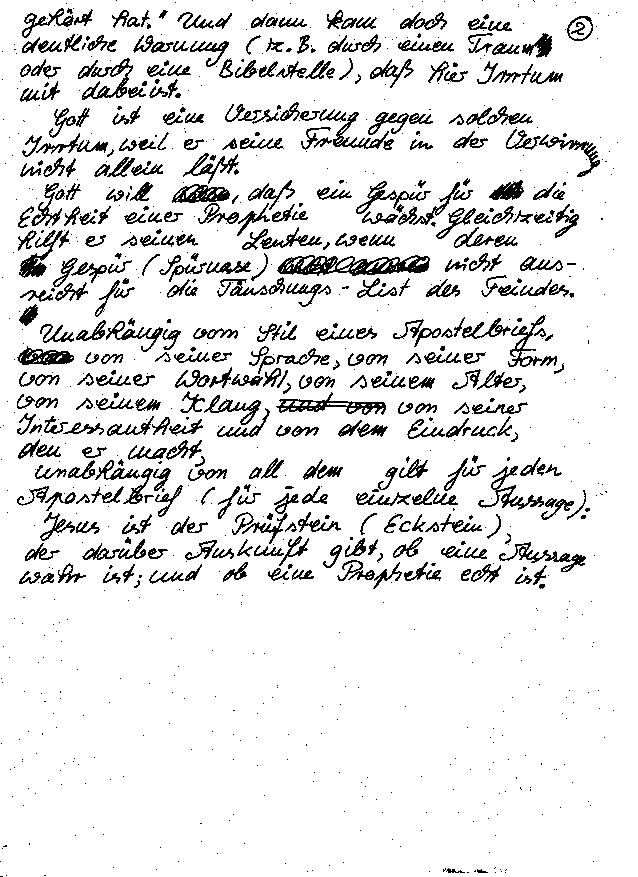 gekärt hat." Und dann kam doch eine
②
deutliche Warnung (z.B. durch einen Traum
oder durch eine Bibelstelle), daß hier Irrtum
mit dabei ist.
Gott ist eine Versicherung gegen solchen
Irrtum, weil er seine Freunde in der Verwirrung
nicht allein läßt.
Gott will, daß ein Gespür für die
Echtheit einer Prophetie wächst. Gleichzeitig
hilft er seinen Leuten, wenn deren
Gespür (Spürnase) nicht aus-
reicht für die Täuschungs-List des Feindes.
Unabhängig vom Stil eines Apostelbriefs,
von seiner Sprache, von seiner Form,
von seiner Wortwahl, von seinem Alter,
von seinem Klang, und von von seiner
Interessantheit und von dem Eindruck,
den er macht,
unabhängig von all dem gilt für jeden
Apostelbrief (für jede einzelne Aussage):
Jesus ist der Prüfstein (Eckstein),
der darüber Auskunft gibt, ob eine Aussage
wahr ist; und ob eine Prophetie echt ist.